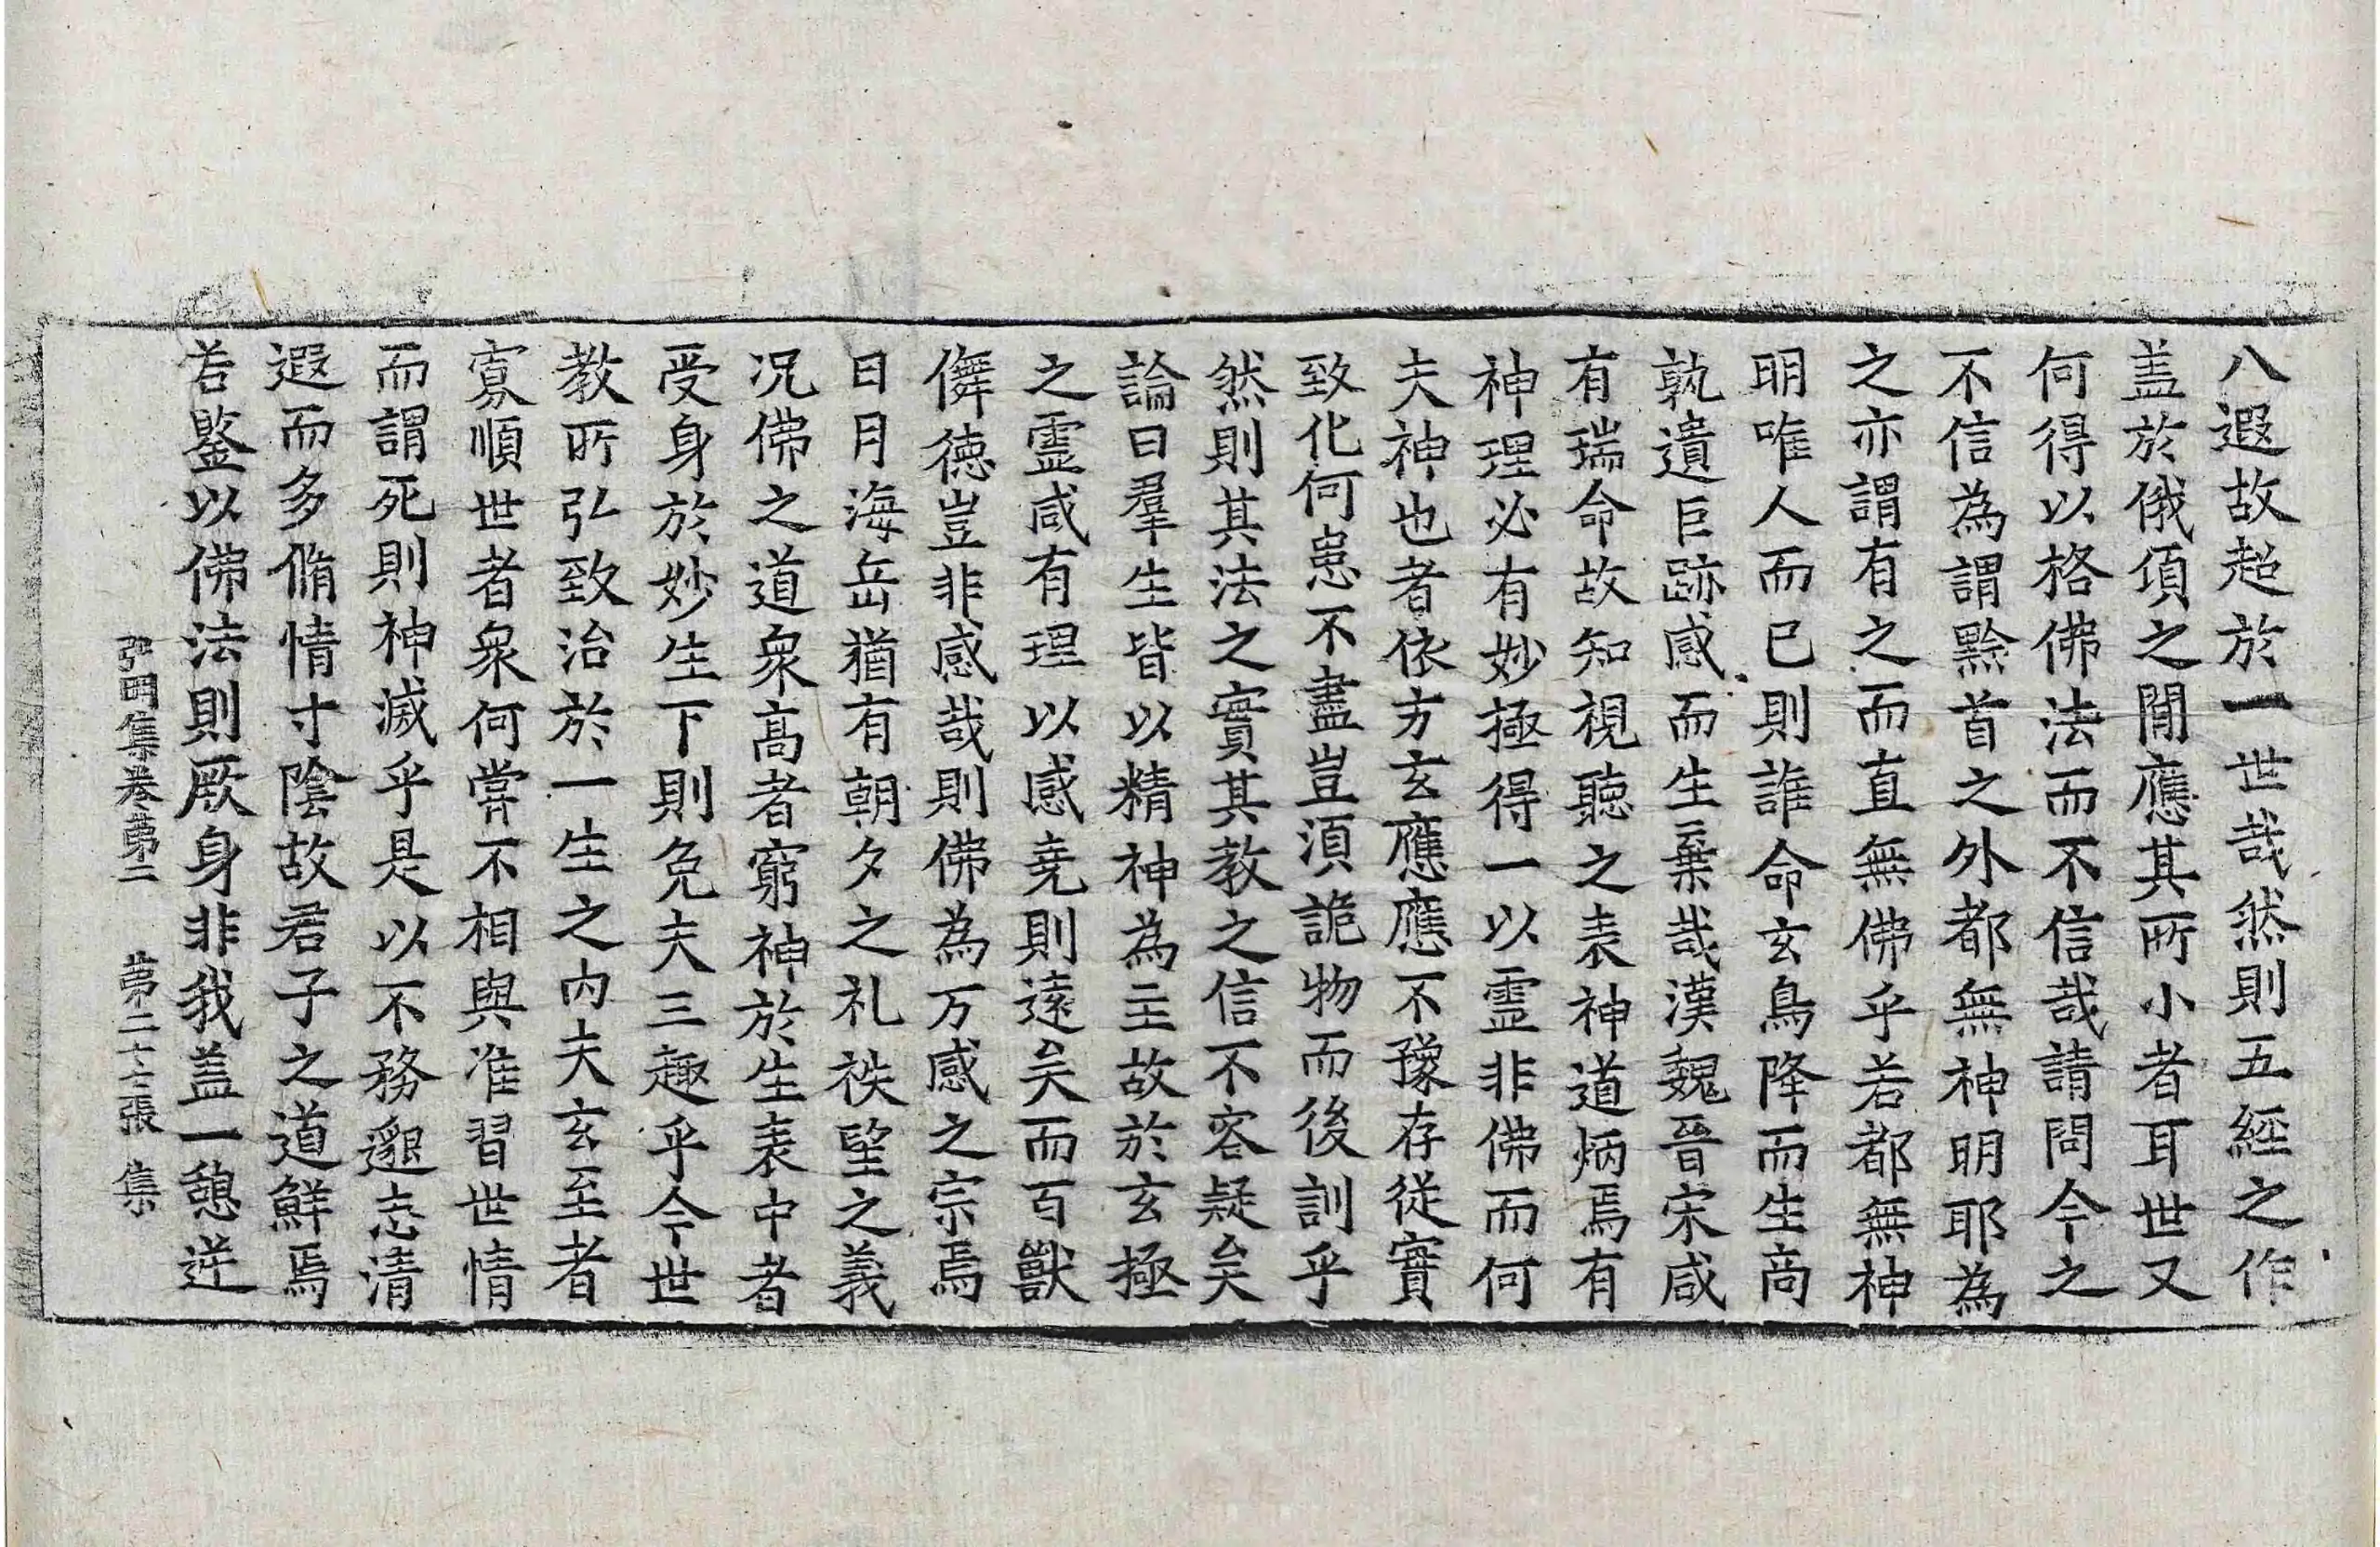 八遐故超於一世哉然則五經之作
盖於俄頃之閒應其所小者耳世又
何得以格佛法而不信哉請問今之
不信為謂黔首之外都無神明耶為
之亦謂有之而直無佛乎若都無神
明唯人而已則誰命玄鳥降而生商
孰遺巨跡感而生棄哉漢魏晉宋咸
有瑞命故知視聽之表神道炳焉有
神理必有妙極得一以霊非佛而何
夫神也者依方玄應應不豫存從實
致化何患不盡豈須詭物而後訓乎
然則其法之實其教之信不容疑矣
論曰羣生皆以精神為主故於玄極
之霊咸有理以感堯則遠矣而百獸
儛德豈非感哉則佛為万感之宗焉
日月海岳猶有朝夕之礼秩望之義
况佛之道衆高者窮神於生表中者
受身於妙生下則免夫三趣乎今世
教所弘致治於一生之內夫玄至者
寡順世者衆何甞不相與准習世情
而謂死則神滅乎是以不務邈志清
遐而多脩情寸陰故君子之道鮮焉
若鍳以佛法則厥身非我盖一憩逆
弘明集卷第二　第二十七張　集